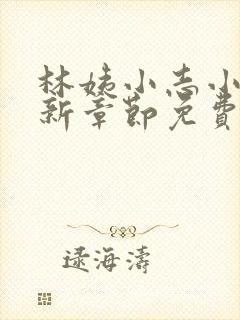 林姨小志小
新章節免費
逯海濤